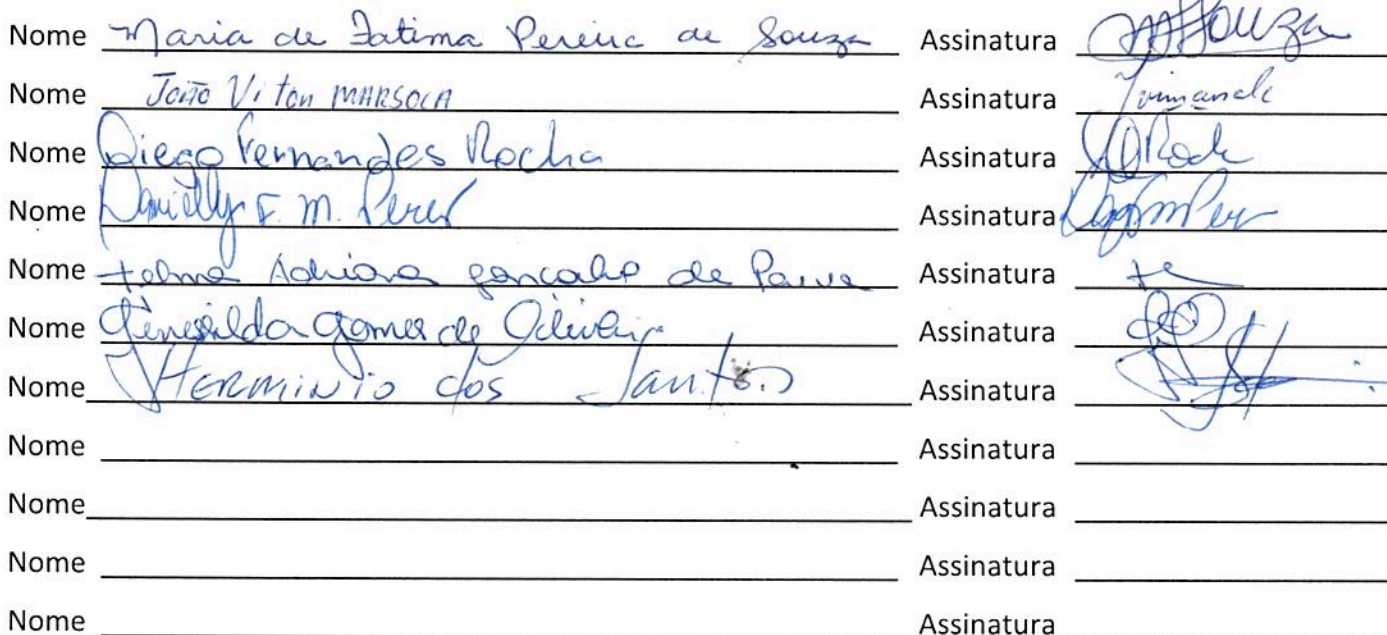 Nome Maria de Fatima Pereira de Souza Assinatura Souza
Nome João Vitor MARSOLA Assinatura
Nome Diego Fernandes Rocha Assinatura
Nome Danielly F. M. Perez Assinatura
Nome telma Adriana gonçalves de Paiva Assinatura
Nome gomes de Oliveira Assinatura
Nome HERMINIO dos Santos Assinatura
Nome Assinatura
Nome Assinatura
Nome Assinatura
Nome Assinatura